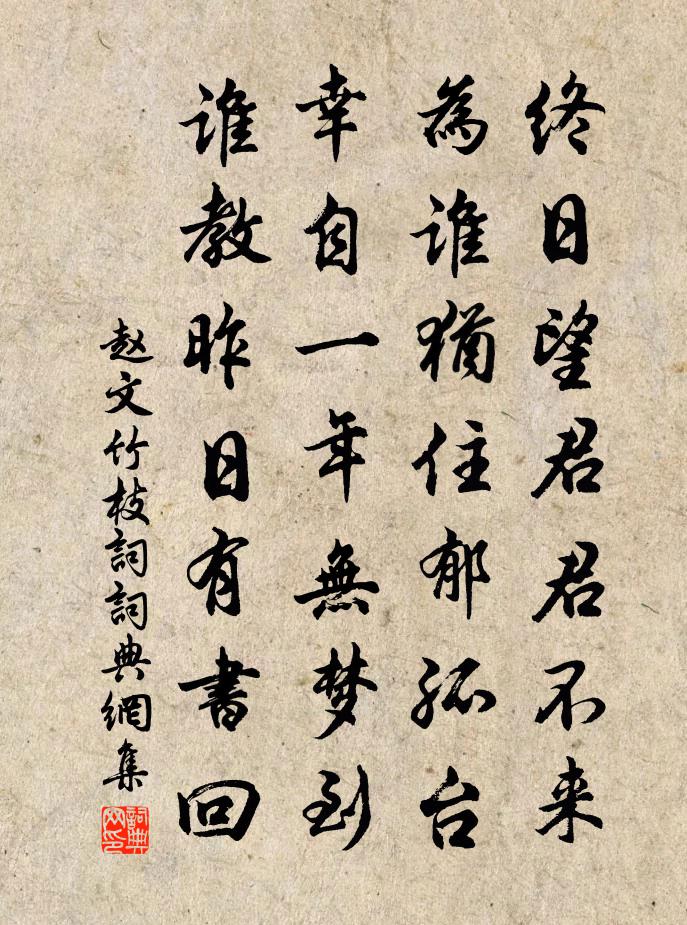 终日望君君不来
為谁猶住郁孤台
幸自一年無梦到
谁教昨日有書回
赵文竹枝詞詞典網集
詞典网印